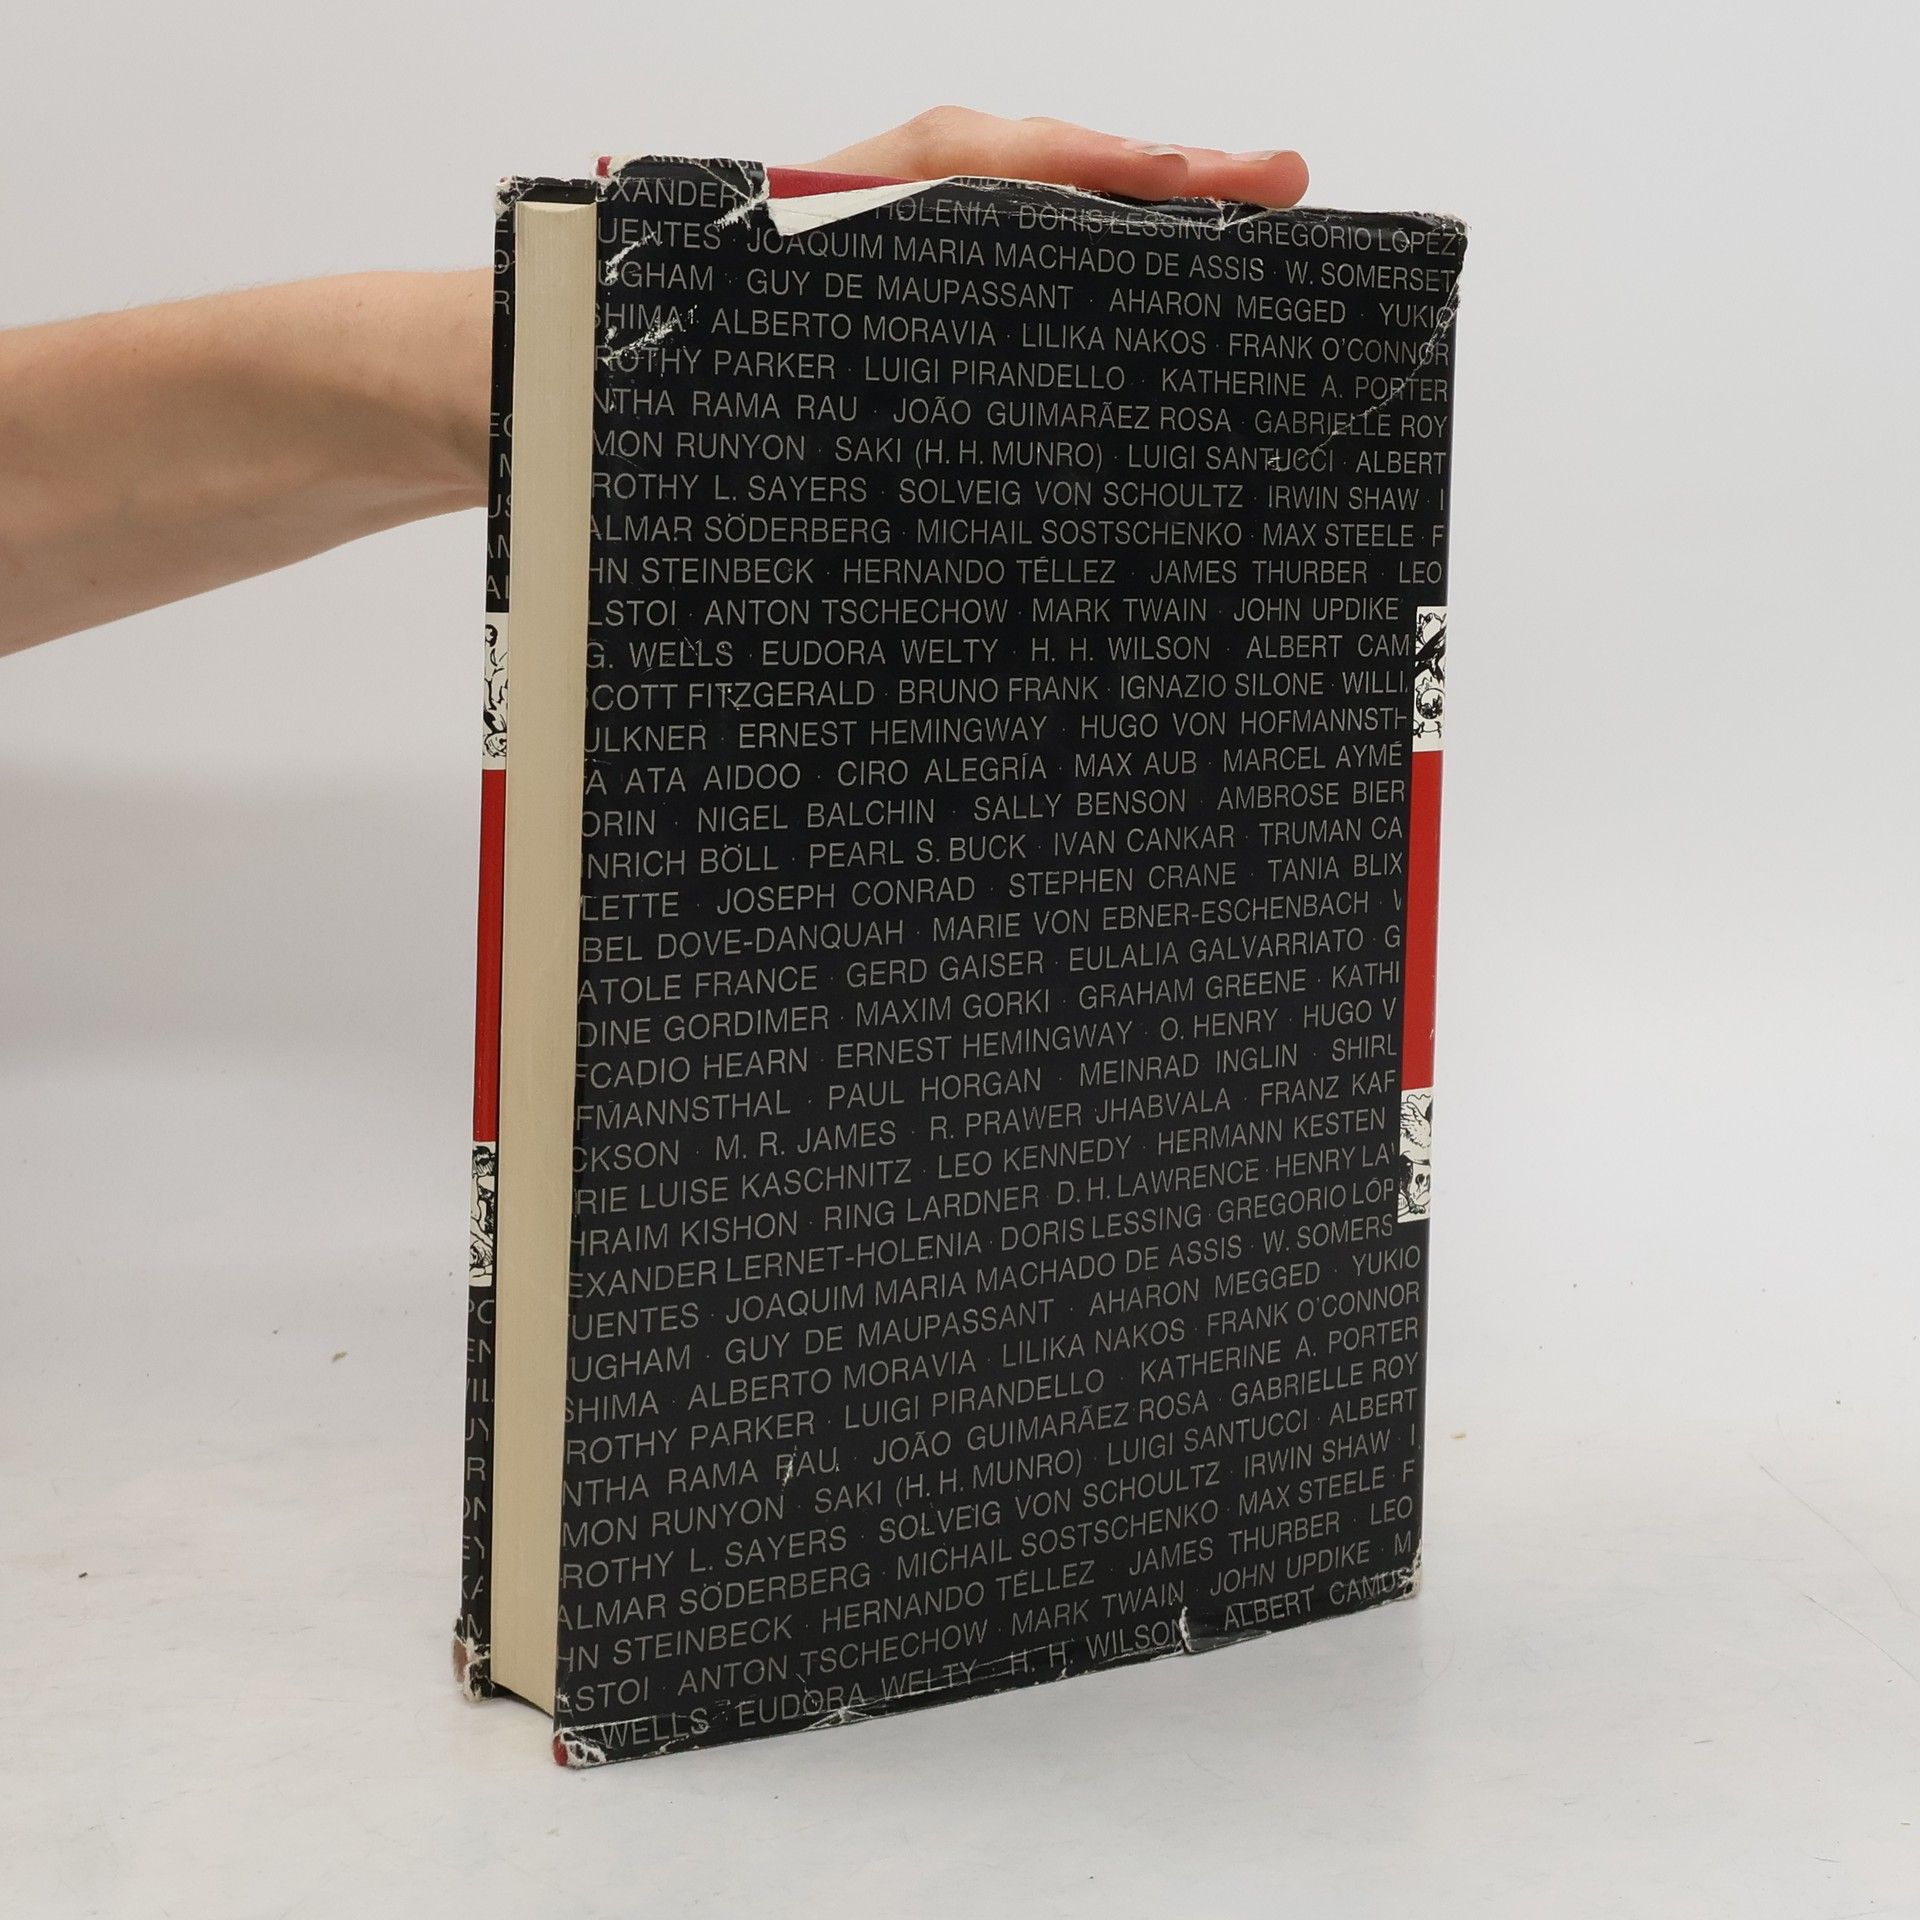 XANDER HOLENIA · DORIS LESSING · GREGORIO LÓPEZ
UENTES · JOAQUIM MARIA MACHADO DE ASSIS · W. SOMERSET
UGHAM · GUY DE MAUPASSANT · AHARON MEGGED · YUKIO
SHIMA · ALBERTO MORAVIA · LILIKA NAKOS · FRANK O'CONNOR
ROTHY PARKER · LUIGI PIRANDELLO · KATHERINE A. PORTER
NTHA RAMA RAU · JOÃO GUIMARÃEZ ROSA · GABRIELLE ROY
MON RUNYON · SAKI (H. H. MUNRO) · LUIGI SANTUCCI · ALBERT
ROTHY L. SAYERS · SOLVEIG VON SCHOULTZ · IRWIN SHAW · I
ALMAR SÖDERBERG · MICHAIL SOSTSCHENKO · MAX STEELE · F
HN STEINBECK · HERNANDO TÉLLEZ · JAMES THURBER · LEO
LSTOI · ANTON TSCHECHOW · MARK TWAIN · JOHN UPDIKE
G. WELLS · EUDORA WELTY · H. H. WILSON · ALBERT CAM
SCOTT FITZGERALD · BRUNO FRANK · IGNAZIO SILONE · WILLI
ULKNER · ERNEST HEMINGWAY · HUGO VON HOFMANNSTH
A ATA AIDOO · CIRO ALEGRÍA · MAX AUB · MARCEL AYMÉ
ORIN · NIGEL BALCHIN · SALLY BENSON · AMBROSE BIER
INRICH BÖLL · PEARL S. BUCK · IVAN CANKAR · TRUMAN CA
LETTE · JOSEPH CONRAD · STEPHEN CRANE · TANIA BLIX
BEL DOVE-DANQUAH · MARIE VON EBNER-ESCHENBACH ·
ATOLE FRANCE · GERD GAISER · EULALIA GALVARRIATO · G
DINE GORDIMER · MAXIM GORKI · GRAHAM GREENE · KATHI
FCADIO HEARN · ERNEST HEMINGWAY · O. HENRY · HUGO V
FMANNSTHAL · PAUL HORGAN · MEINRAD INGLIN · SHIRL
CKSON · M. R. JAMES · R. PRAWER JHABVALA · FRANZ KAF
RIE LUISE KASCHNITZ · LEO KENNEDY · HERMANN KESTEN
HRAIM KISHON · RING LARDNER · D. H. LAWRENCE · HENRY LA
EXANDER LERNET-HOLENIA · DORIS LESSING · GREGORIO LÓP
UENTES · JOAQUIM MARIA MACHADO DE ASSIS · W. SOMERS
UGHAM · GUY DE MAUPASSANT · AHARON MEGGED · YUKIO
SHIMA · ALBERTO MORAVIA · LILIKA NAKOS · FRANK O'CONNOR
ROTHY PARKER · LUIGI PIRANDELLO · KATHERINE A. PORTER
NTHA RAMA RAU · JOÃO GUIMARÃEZ ROSA · GABRIELLE ROY
MON RUNYON · SAKI (H. H. MUNRO) · LUIGI SANTUCCI · ALBERT
ROTHY L. SAYERS · SOLVEIG VON SCHOULTZ · IRWIN SHAW · I
ALMAR SÖDERBERG · MICHAIL SOSTSCHENKO · MAX STEELE · F
HN STEINBECK · HERNANDO TÉLLEZ · JAMES THURBER · LEO
LSTOI · ANTON TSCHECHOW · MARK TWAIN · JOHN UPDIKE · M
WELLS · EUDORA WELTY · H. H. WILSON ALBERT CAMUS